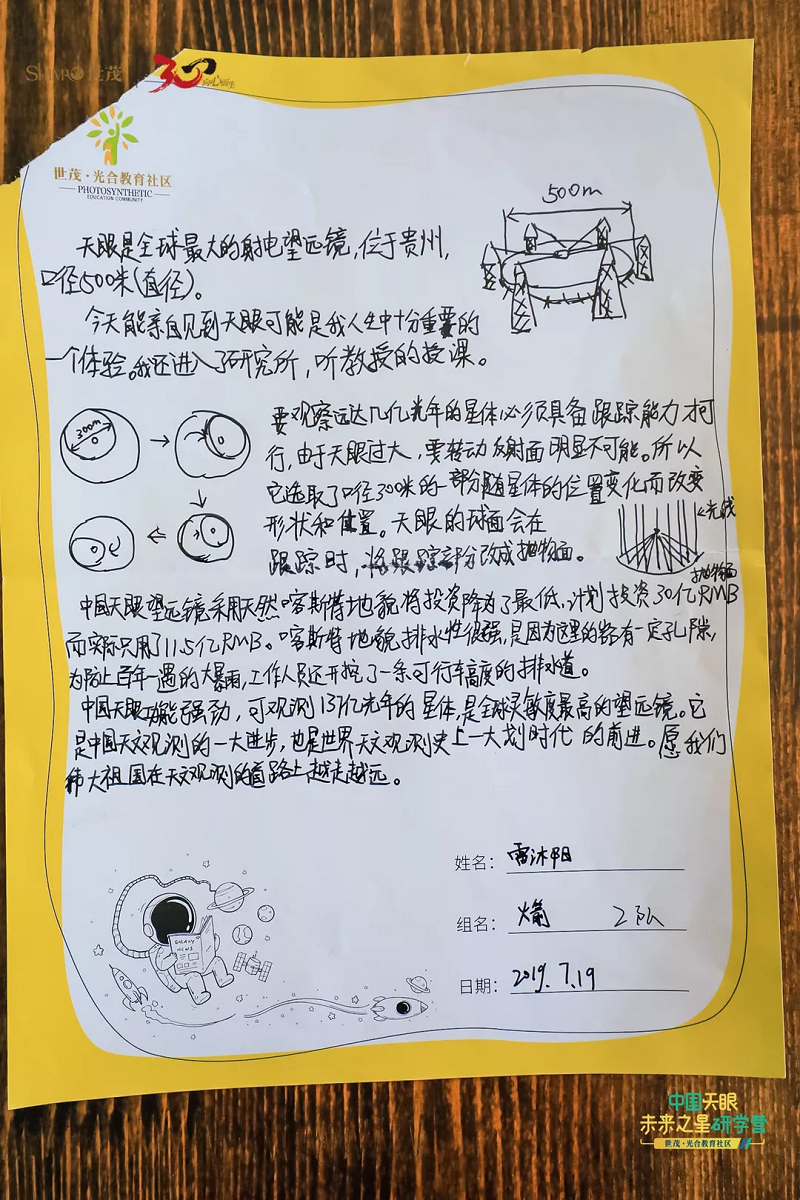 SHIMAO 世茂
30
向心而生
世茂·光合教育社区
PHOTOSYNTHETIC
EDUCATION COMMUNITY
500m
天眼是全球最大的射电望远镜,位于贵州,
口径500米(直径)。
今天能亲自见到天眼可能是我人生中十分重要的
一个体验。我还进入了研究所,听教授的授课。
300m
要观察远达几亿光年的星体必须具备跟踪能力才可
行,由于天眼过大,要转动反射面明显不可能。所以
它选取了口径300米的一部分随星体的位置变化而改变
形状和位置。天眼的球面会在
跟踪时,将跟踪部分改成抛物面。
光线
抛物面
中国天眼望远镜采用天然喀斯特地貌将投资降为了最低,计划投资30亿RMB
而实际只用了11.5亿RMB。喀斯特地貌排水性很强,是因为这里的路有一定孔隙,
为防止百年一遇的大暴雨,工作人员还开挖了一条可行车高度的排水道。
中国天眼功能强劲,可观测137亿光年的星体,是全球灵敏度最高的望远镜。它
是中国天文观测的一大进步,也是世界天文观测史上一大划时代的前进。愿我们
伟大祖国在天文观测的道路上越走越远。
GALAXY
NEWS
姓名: 雷沐阳
组名: 2队
日期: 2019.7.19
中国天眼
未来之星研学营
世茂·光合教育社区